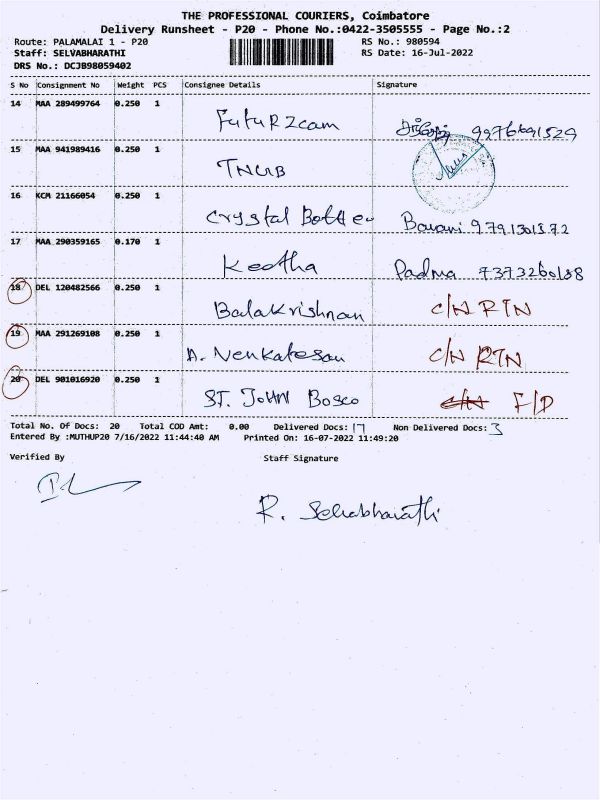 THE PROFESSIONAL COURIERS, Coimbatore
Delivery Runsheet - P20 - Phone No.:0422-3505555 - Page No.:2
Route: PALAMALAI 1 - P20 RS No.: 980594
Staff: SELVABHARATHI RS Date: 16-Jul-2022
DRS No.: DCJB98059402
S No Consignment No Weight PCS Consignee Details Signature
14 MAA 289499764 0.250 1
FutuRZcam
15 MAA 941989416 0.250 1
TNUB
16 KCM 21166054 0.250 1
Crystal Bavani 9791301372
17 MAA 290359165 0.170 1
Keetha Padma 7373260188
18 DEL 120482566 0.250 1
Balakrishnan C/N RTN
19 MAA 291269108 0.250 1
A. Venkatesan C/N RTN
20 DEL 901016920 0.250 1
ST. JOHN Bosco C/N F/D
Total No. Of Docs: 20 Total COD Amt: 0.00 Delivered Docs: 17 Non Delivered Docs: 3
Entered By :MUTHUP20 7/16/2022 11:44:40 AM Printed On: 16-07-2022 11:49:20
Verified By Staff Signature
R. Selvabharathi